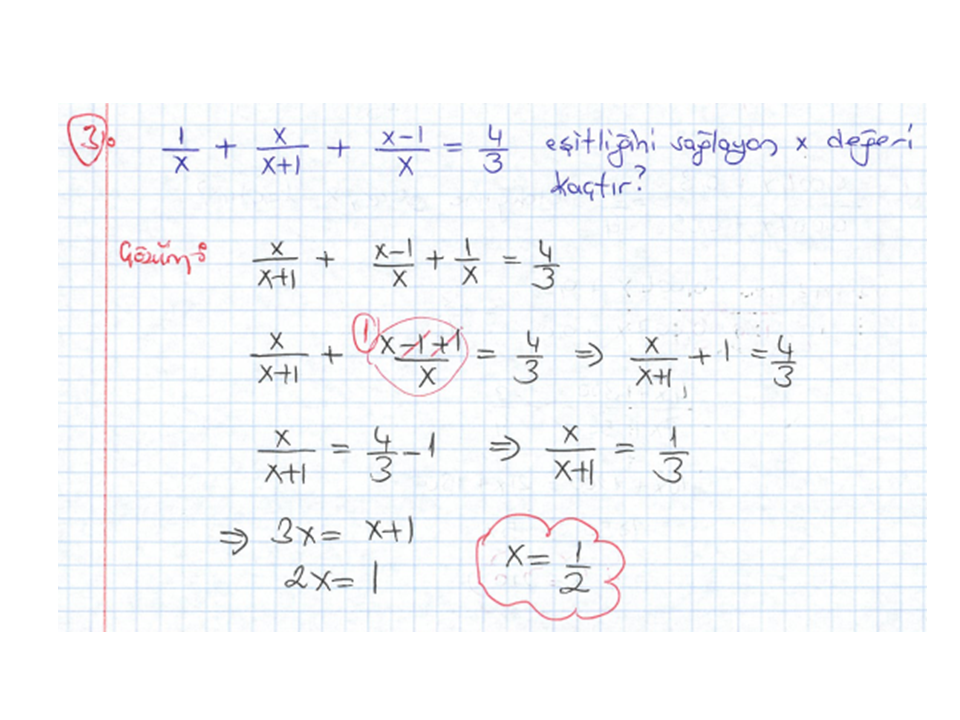 3. 1/x + x/(x+1) + (x-1)/x = 4/3 eşitliğini sağlayan x değeri
kaçtır?
Çözüm: x/(x+1) + (x-1)/x + 1/x = 4/3
x/(x+1) + 1 (x-1+1)/x = 4/3 ⇒ x/(x+1) + 1 = 4/3
x/(x+1) = 4/3 - 1 ⇒ x/(x+1) = 1/3
⇒ 3x = x+1
2x = 1
x = 1/2